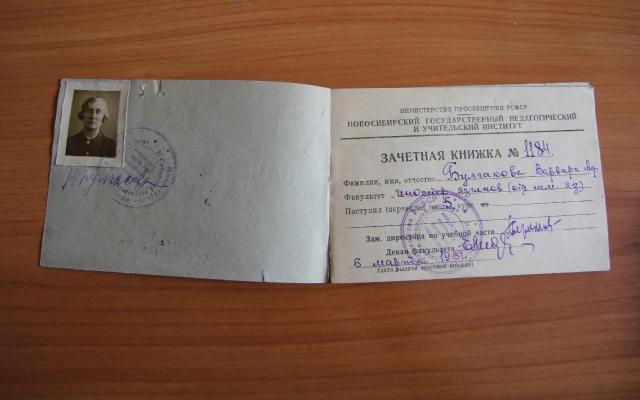 МИНИСТЕРСТВО ПРОСВЕЩЕНИЯ РСФСР
НОВОСИБИРСКИЙ ГОСУДАРСТВЕННЫЙ ПЕДАГОГИЧЕСКИЙ
И УЧИТЕЛЬСКИЙ ИНСТИТУТ
ЗАЧЕТНАЯ КНИЖКА № 1184.
Фамилия, имя, отчество Булгакова Варвара
Факультет иностр. языков (отд. нем. яз)
Поступил 5
Зам. директора по учебной части
Декан факультета
5 марта 1951г.
(дата выдачи зачетной книжки)